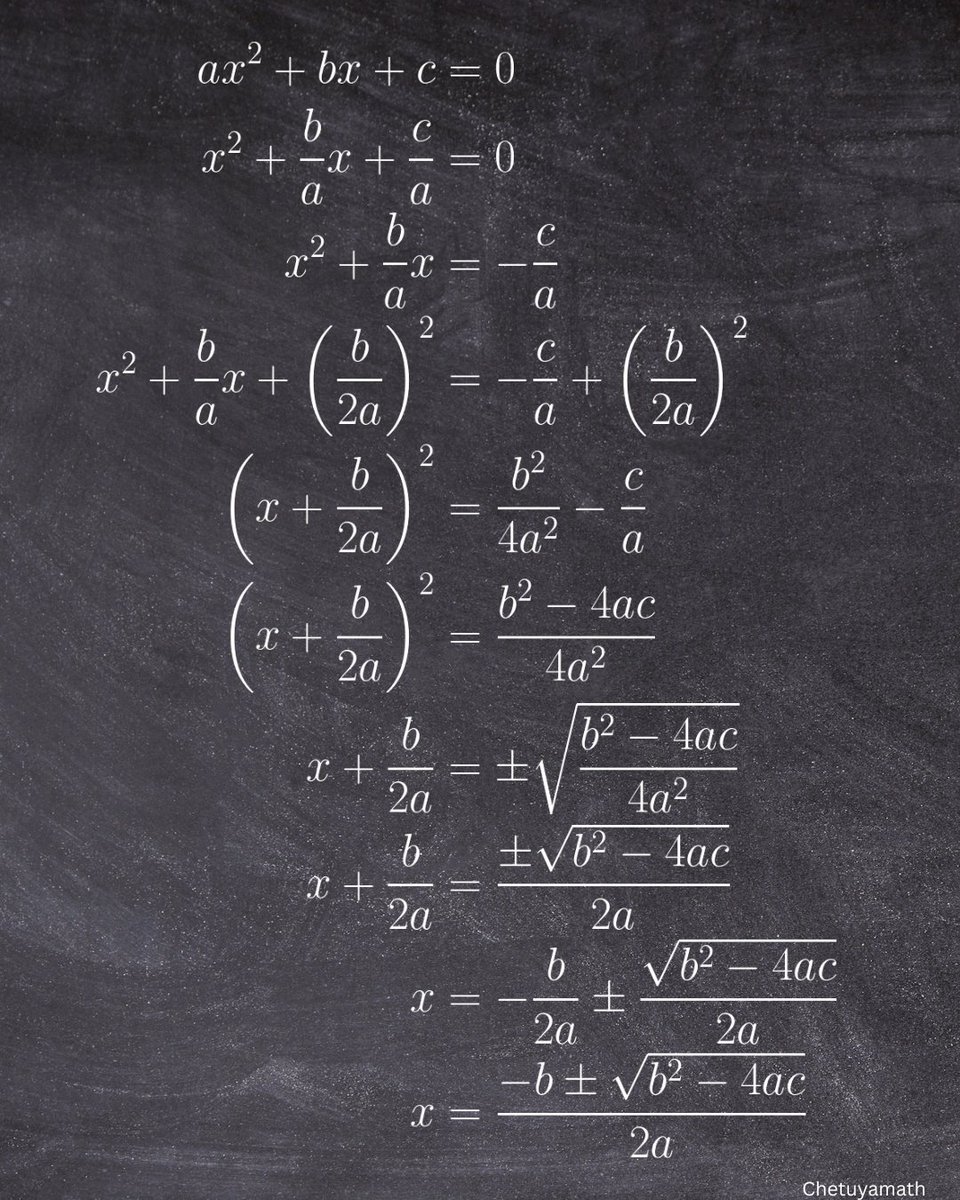 $ax^2 + bx + c = 0$
$x^2 + \frac{b}{a}x + \frac{c}{a} = 0$
$x^2 + \frac{b}{a}x = -\frac{c}{a}$
$x^2 + \frac{b}{a}x + \left(\frac{b}{2a}\right)^2 = -\frac{c}{a} + \left(\frac{b}{2a}\right)^2$
$\left(x + \frac{b}{2a}\right)^2 = \frac{b^2}{4a^2} - \frac{c}{a}$
$\left(x + \frac{b}{2a}\right)^2 = \frac{b^2 - 4ac}{4a^2}$
$x + \frac{b}{2a} = \pm\sqrt{\frac{b^2 - 4ac}{4a^2}}$
$x + \frac{b}{2a} = \frac{\pm\sqrt{b^2 - 4ac}}{2a}$
$x = -\frac{b}{2a} \pm \frac{\sqrt{b^2 - 4ac}}{2a}$
$x = \frac{-b \pm \sqrt{b^2 - 4ac}}{2a}$
Chetuyamath